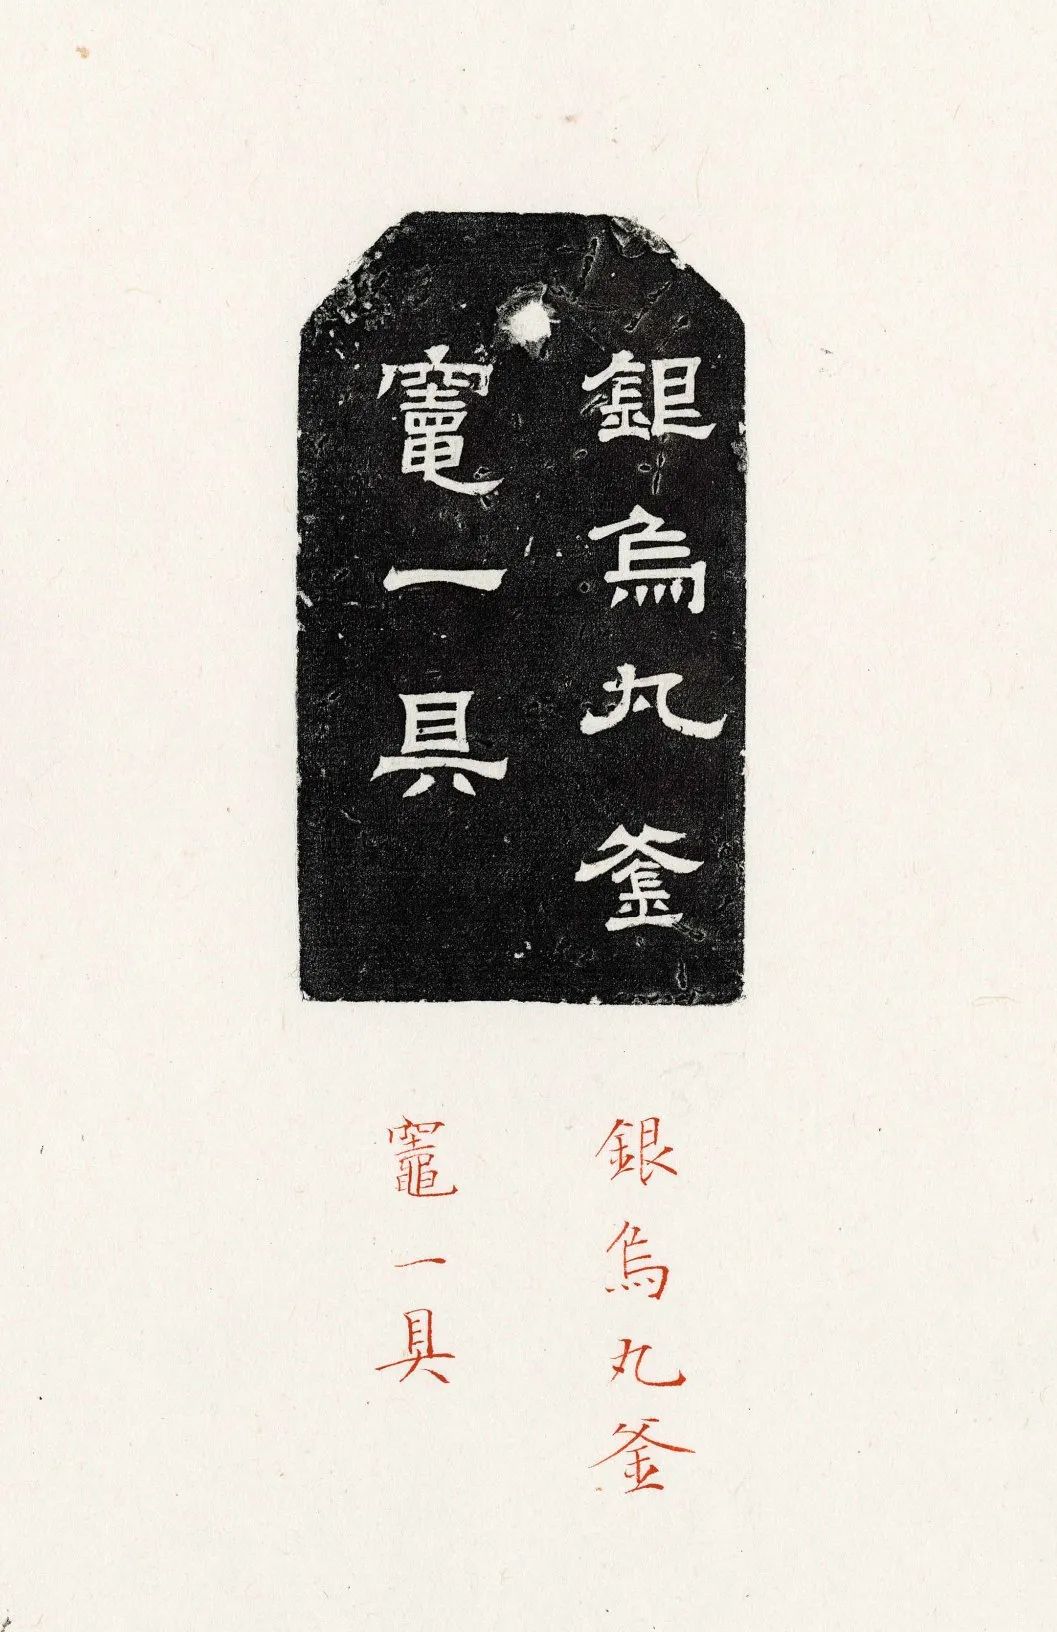 銀烏丸釜
竈一具
銀烏丸釜
竈一具